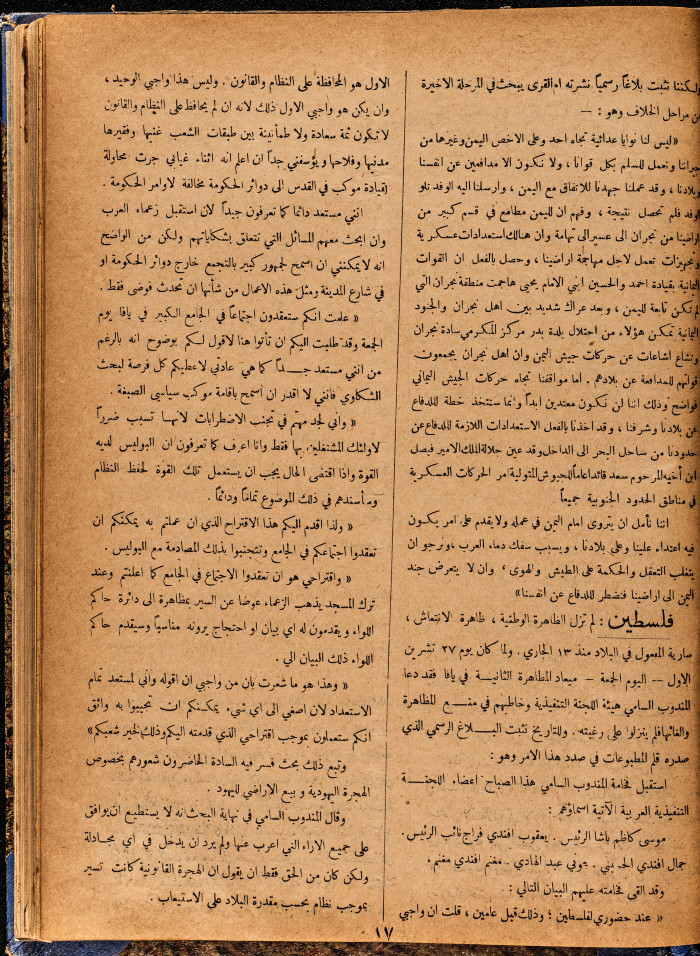 ولكننا نثبت بلاغاً رسمياً نشرته ام القرى يبحث في المرحلة الاخيرة
من مراحل الخلاف وهو : —
«ليس لنا نوايا عدائية تجاه احد وعلى الاخص اليمن وغيرها من
جيراننا ونعمل للسلم بكل قوانا ، ولا نكون الا مدافعين عن انفسنا
وبلادنا ، وقد عملنا جهدنا للاتفاق مع اليمن ، وارسلنا اليه الوفد تلو
الوفد فلم تحصل نتيجة ، وفهم ان لليمن مطامع في قسم كبير من
اراضينا من نجران الى عسير الى تهامة وان هنالك استعدادات عسكرية
وتجهيزات تعمل لاجل مهاجمة اراضينا ، وحصل بالفعل ان القوات
اليمانية بقيادة احمد والحسين ابني الامام يحيى هاجمت منطقة نجران التي
لم تكن تابعة لليمن ، وبعد عراك شديد بين اهل نجران والجنود
اليمانية تمكن هؤلاء من احتلال بلدة بدر مركز المكرمي سادة نجران
وتشاع اشاعات عن حركات جيش اليمن وان اهل نجران يجمعون
قواتهم للمدافعة عن بلادهم . اما موافقنا تجاه حركات الجيش اليماني
فواضح وذلك اننا لن نكون معتدين ابداً وانما سنتخذ خطة للدفاع
عن بلادنا وشرفنا ، وقد اخذنا بالفعل الاستعدادات اللازمة للدفاع عن
حدودنا من ساحل البحر الى الداخل وقد عين جلالة الملك الامير فيصل
ابن أخيه المرحوم سعد قائداً عاماً للجيوش المتولية امر الحركات العسكرية
في مناطق الحدود الجنوبية جميعاً
اننا نأمل ان يتروى امام اليمن في عمله ولا يقدم على امر يكون
فيه اعتداء علينا وعلى بلادنا ، ويسبب سفك دماء العرب ، ونرجو ان
يتغلب التعقل والحكمة على الطيش والهوى ، وان لا يتعرض جند
اليمن الى اراضينا فنضطر للدفاع عن انفسنا»
فلسطين : لم تزل الظاهرة الوطنية ، ظاهرة الانتعاش ،
سارية المفعول في البلاد منذ ١٣ الجاري . ولما كان يوم ٢٧ تشرين
الاول – اليوم الجمعة – ميعاد المظاهرة الثانية في يافا فقد دعا
المندوب السامي هيئة اللجنة التنفيذية وخاطبهم في منع المظاهرة
والغائها فلم ينزلوا على رغبته . وللتاريخ نثبت البلاغ الرسمي الذي
صدره قلم المطبوعات في صدد هذا الامر وهو :
استقبل فخامة المندوب السامي هذا الصباح اعضاء اللجنة
التنفيذية العربية الآتية اسماؤهم :
موسى كاظم باشا الرئيس . يعقوب افندي فراج نائب الرئيس .
جمال افندي الحسيني . عوني عبد الهادي . مغنم افندي مغنم .
وقد القى فخامته عليهم البيان التالي :
« عند حضوري لفلسطين ؛ وذلك قبل عامين ، قلت ان واجبي
الاول هو المحافظة على النظام والقانون . وليس هذا واجبي الوحيد ،
وان يكن هو واجبي الاول ذلك لانه ان لم يحافظ على النظام والقانون
لا تكون ثمة سعادة ولا طمأنينة بين طبقات الشعب غنيها وفقيرها
مدنيها وفلاحها ويؤسفني جداً ان اعلم انه اثناء غيابي جرت محاولة
لقيادة موكب في القدس الى دوائر الحكومة مخالفة لاوامر الحكومة .
انني مستعد دائما كما تعرفون جيداً لان استقبل زعماء العرب
وان ابحث معهم المسائل التي تتعلق بشكاياتهم ولكن من الواضح
انه لا يمكنني ان اسمح لجمهور كبير بالتجمع خارج دوائر الحكومة او
في شارع المدينة ومثل هذه الاعمال من شأنها ان تحدث فوضى فقط .
« علمت انكم ستعقدون اجتماعاً في الجامع الكبير في يافا يوم
الجمعة وقد طلبت اليكم ان تأتوا هنا لاقول لكم بوضوح انه بالرغم
من انني مستعد جداً كما هي عادتي لاعطيكم كل فرصة لبحث
الشكاوي فانني لا اقدر ان اسمح باقامة موكب سياسي الصبغة .
« وانني لجد مهتم في تجنب الاضطرابات لانها تسبب ضرراً
لاولئك المشتغلين بها فقط وانا اعرف كما تعرفون ان البوليس لديه
القوة واذا اقتضى الحال يجب ان يستعمل تلك القوة لحفظ النظام
وسأسندهم في ذلك الموضوع تماماً ودائماً .
« ولذا اقدم اليكم هذا الاقتراح الذي ان عملتم به يمكنكم ان
تعقدوا اجتماعكم في الجامع وتتجنبوا بذلك المصادمة مع البوليس .
« واقتراحي هو ان تعقدوا الاجتماع في الجامع كما اعلنتم وعند
ترك المسجد يذهب الزعماء عوضا عن السير بمظاهرة الى دائرة حاكم
اللواء ويقدمون له اي بيان او احتجاج يرونه مناسباً وسيقدم حاكم
اللواء ذلك البيان الي .
« وهذا هو ما شعرت بان من واجبي ان اقوله وانني لمستعد تمام
الاستعداد لان اصغى الى اي شيء يمكنكم ان تجيبوا به واثق
انكم ستعملون بموجب اقتراحي الذي قدمته اليكم وذلك لخير شعبكم»
وتبع ذلك بحث فسر فيه السادة الحاضرون شعورهم بخصوص
الهجرة اليهودية و بيع الاراضي لليهود .
وقال المندوب السامي في نهاية البحث انه لا يستطيع ان يوافق
على جميع الاراء التي اعرب عنها ولم يرد ان يدخل في اي مجادلة
ولكن كان من الحق فقط ان يقول ان الهجرة القانونية كانت تسير
بموجب نظام بحسب مقدرة البلاد على الاستيعاب .
١٧